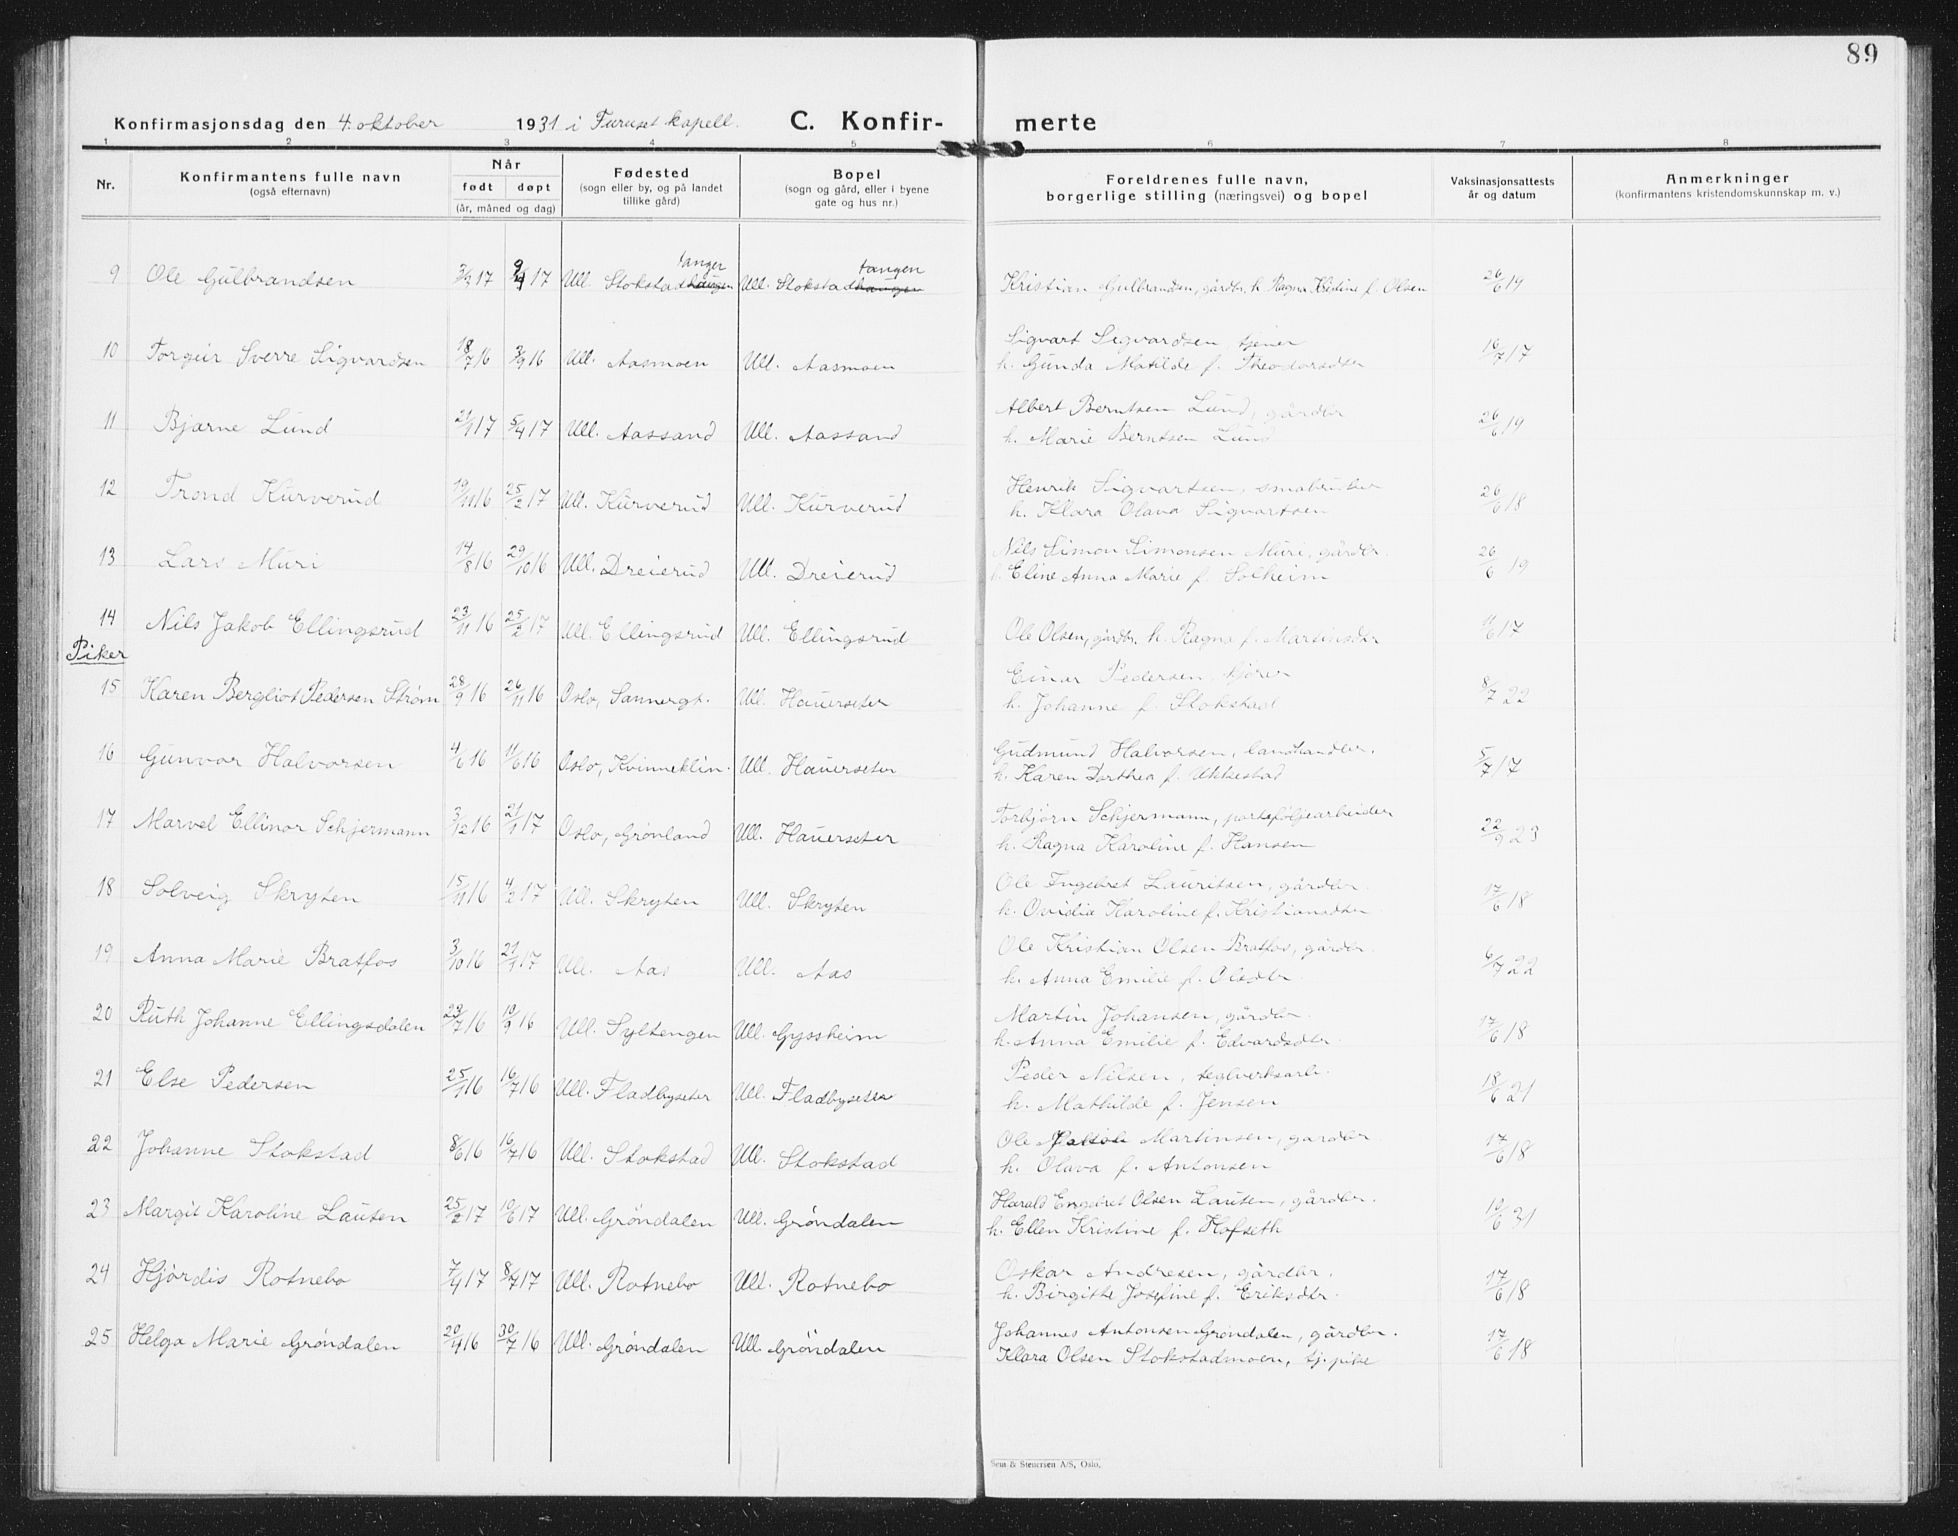 89
Konfirmasjonsdag den 4. oktober 1931 i Furuset kapell. C. Konfir- merte
1 2 3 4 5 6 7 8
Nr. Konfirmantens fulle navn (også efternavn) Når født døpt (år, måned og dag) Fødested (sogn eller by, og på landet tillike gård) Bopel (sogn og gård, eller i byene gate og hus nr.) Foreldrenes fulle navn, borgerlige stilling (næringsvei) og bopel Vaksinasjonsattests år og datum Anmerkninger (konfirmantens kristendomskunnskap m. v.)
9 Ole Gulbrandsen 3/3 17 9/4 17 Ull. Stokstadhaugen tangen Ull. Stokstadhaugen tangen Kristian Gulbrandsen, gårdbr. h. Ragna Kristine f. Olsen 26/6 19
10 Torgeir Sverre Sigvardsen 18/7 16 3/9 16 Ull. Aasmoen Ull. Aasmoen Sigvart Sigvardsen, tjener 16/7 17
h. Gunda Matilde f. Theodorsdtr
11 Bjarne Lund 21/1 17 5/4 17 Ull. Aassand Ull. Aassand Albert Berntsen Lund, gårdbr 26/6 19
h. Marie Berntsen Lund
12 Trond Kurverud 19/11 16 25/2 17 Ull. Kurverud Ull. Kurverud Henrik Sigvartsen, småbruker 26/6 18
h. Klara Olava Sigvartsen
13 Lars Muri 14/8 16 29/10 16 Ull. Dreierud Ull. Dreierud Nils Simon Simonsen Muri, gårdbr. 26/6 19
h. Eline Anna Marie f. Solheim
14 Nils Jakob Ellingsrud 23/11 16 25/2 17 Ull. Ellingsrud Ull. Ellingsrud Ole Olsen, gårdbr. h. Ragna f. Martinsdtr 11/6 17
Piker
15 Karen Bergliot Pedersen Strøm 28/9 16 26/11 16 Oslo, Sannergt. Ull. Hauerseter Einar Pedersen, kjører 8/7 22
h. Johanne f. Stokstad
16 Gunvor Halvorsen 4/6 16 11/6 16 Oslo, Kvinneklin. Ull. Hauerseter Gudmund Halvorsen, landhandler. 5/7 17
h. Karen Dorthea f. Ukkestad
17 Marvel Ellinor Schjermann 3/12 16 21/1 17 Oslo, Grønland Ull. Hauerseter Torbjørn Schjermann, porteføljearbeider 22/9 23
h. Ragna Karoline f. Hansen
18 Solveig Skryten 15/11 16 4/2 17 Ull. Skryten Ull. Skryten Ole Ingebret Lauritsen, gårdbr. 17/6 18
h. Ovidia Karoline f. Kristiansdtr
19 Anna Marie Bratfos 3/10 16 21/1 17 Ull. Aas Ull. Aas Ole Kristian Olsen Bratfos, gårdbr. 6/7 22
h. Anna Emilie f. Olsdtr.
20 Ruth Johanne Ellingsdalen 23/7 16 10/9 16 Ull. Syltengen Ull. Gyssheim Martin Johansen, gårdbr. 17/6 18
h. Anna Emilie f. Edvardsdtr.
21 Else Pedersen 25/1 16 16/7 16 Ull. Fladbyseter Ull. Fladbyseter Peder Nilsen, teglverksarb. 18/6 21
h. Mathilde f. Jensen
22 Johanne Stokstad 8/6 16 16/7 16 Ull. Stokstad Ull. Stokstad Ole Martinsen, gardbr. 17/6 18
h. Olava f. Antonsen
23 Margit Karoline Lausen 25/2 17 10/6 17 Ull. Grøndalen Ull. Grøndalen Harald Engebret Olsen Lausen, gårdbr. 10/6 31
h. Ellen Kristine f. Hofseth
24 Hjørdis Rotnebo 7/4 17 8/7 17 Ull. Rotnebo Ull. Rotnebo Oskar Andresen, gårdbr. 17/6 18
h. Birgitte Josefine f. Eriksdtr.
25 Helga Marie Grøndalen 20/4 16 30/7 16 Ull. Grøndalen Ull. Grøndalen Johannes Antonsen Grøndalen, gårdbr. 17/6 18
Klara Olsen Stokstadmoen, tj.pike
Sem & Stenersen A/S, Oslo.